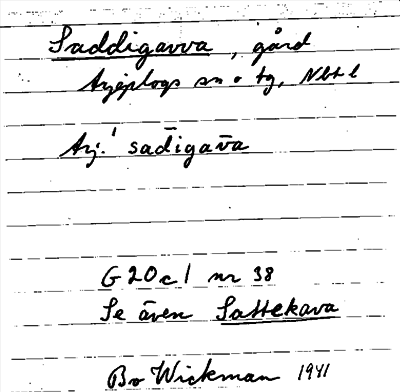 Saddigavva, gård
Arjeplogs sn o tg, Nbt l
Arj.! sadīgav̄a
G 20 c 1 nr 38
Se även Sattekava
Bo Wickman 1941